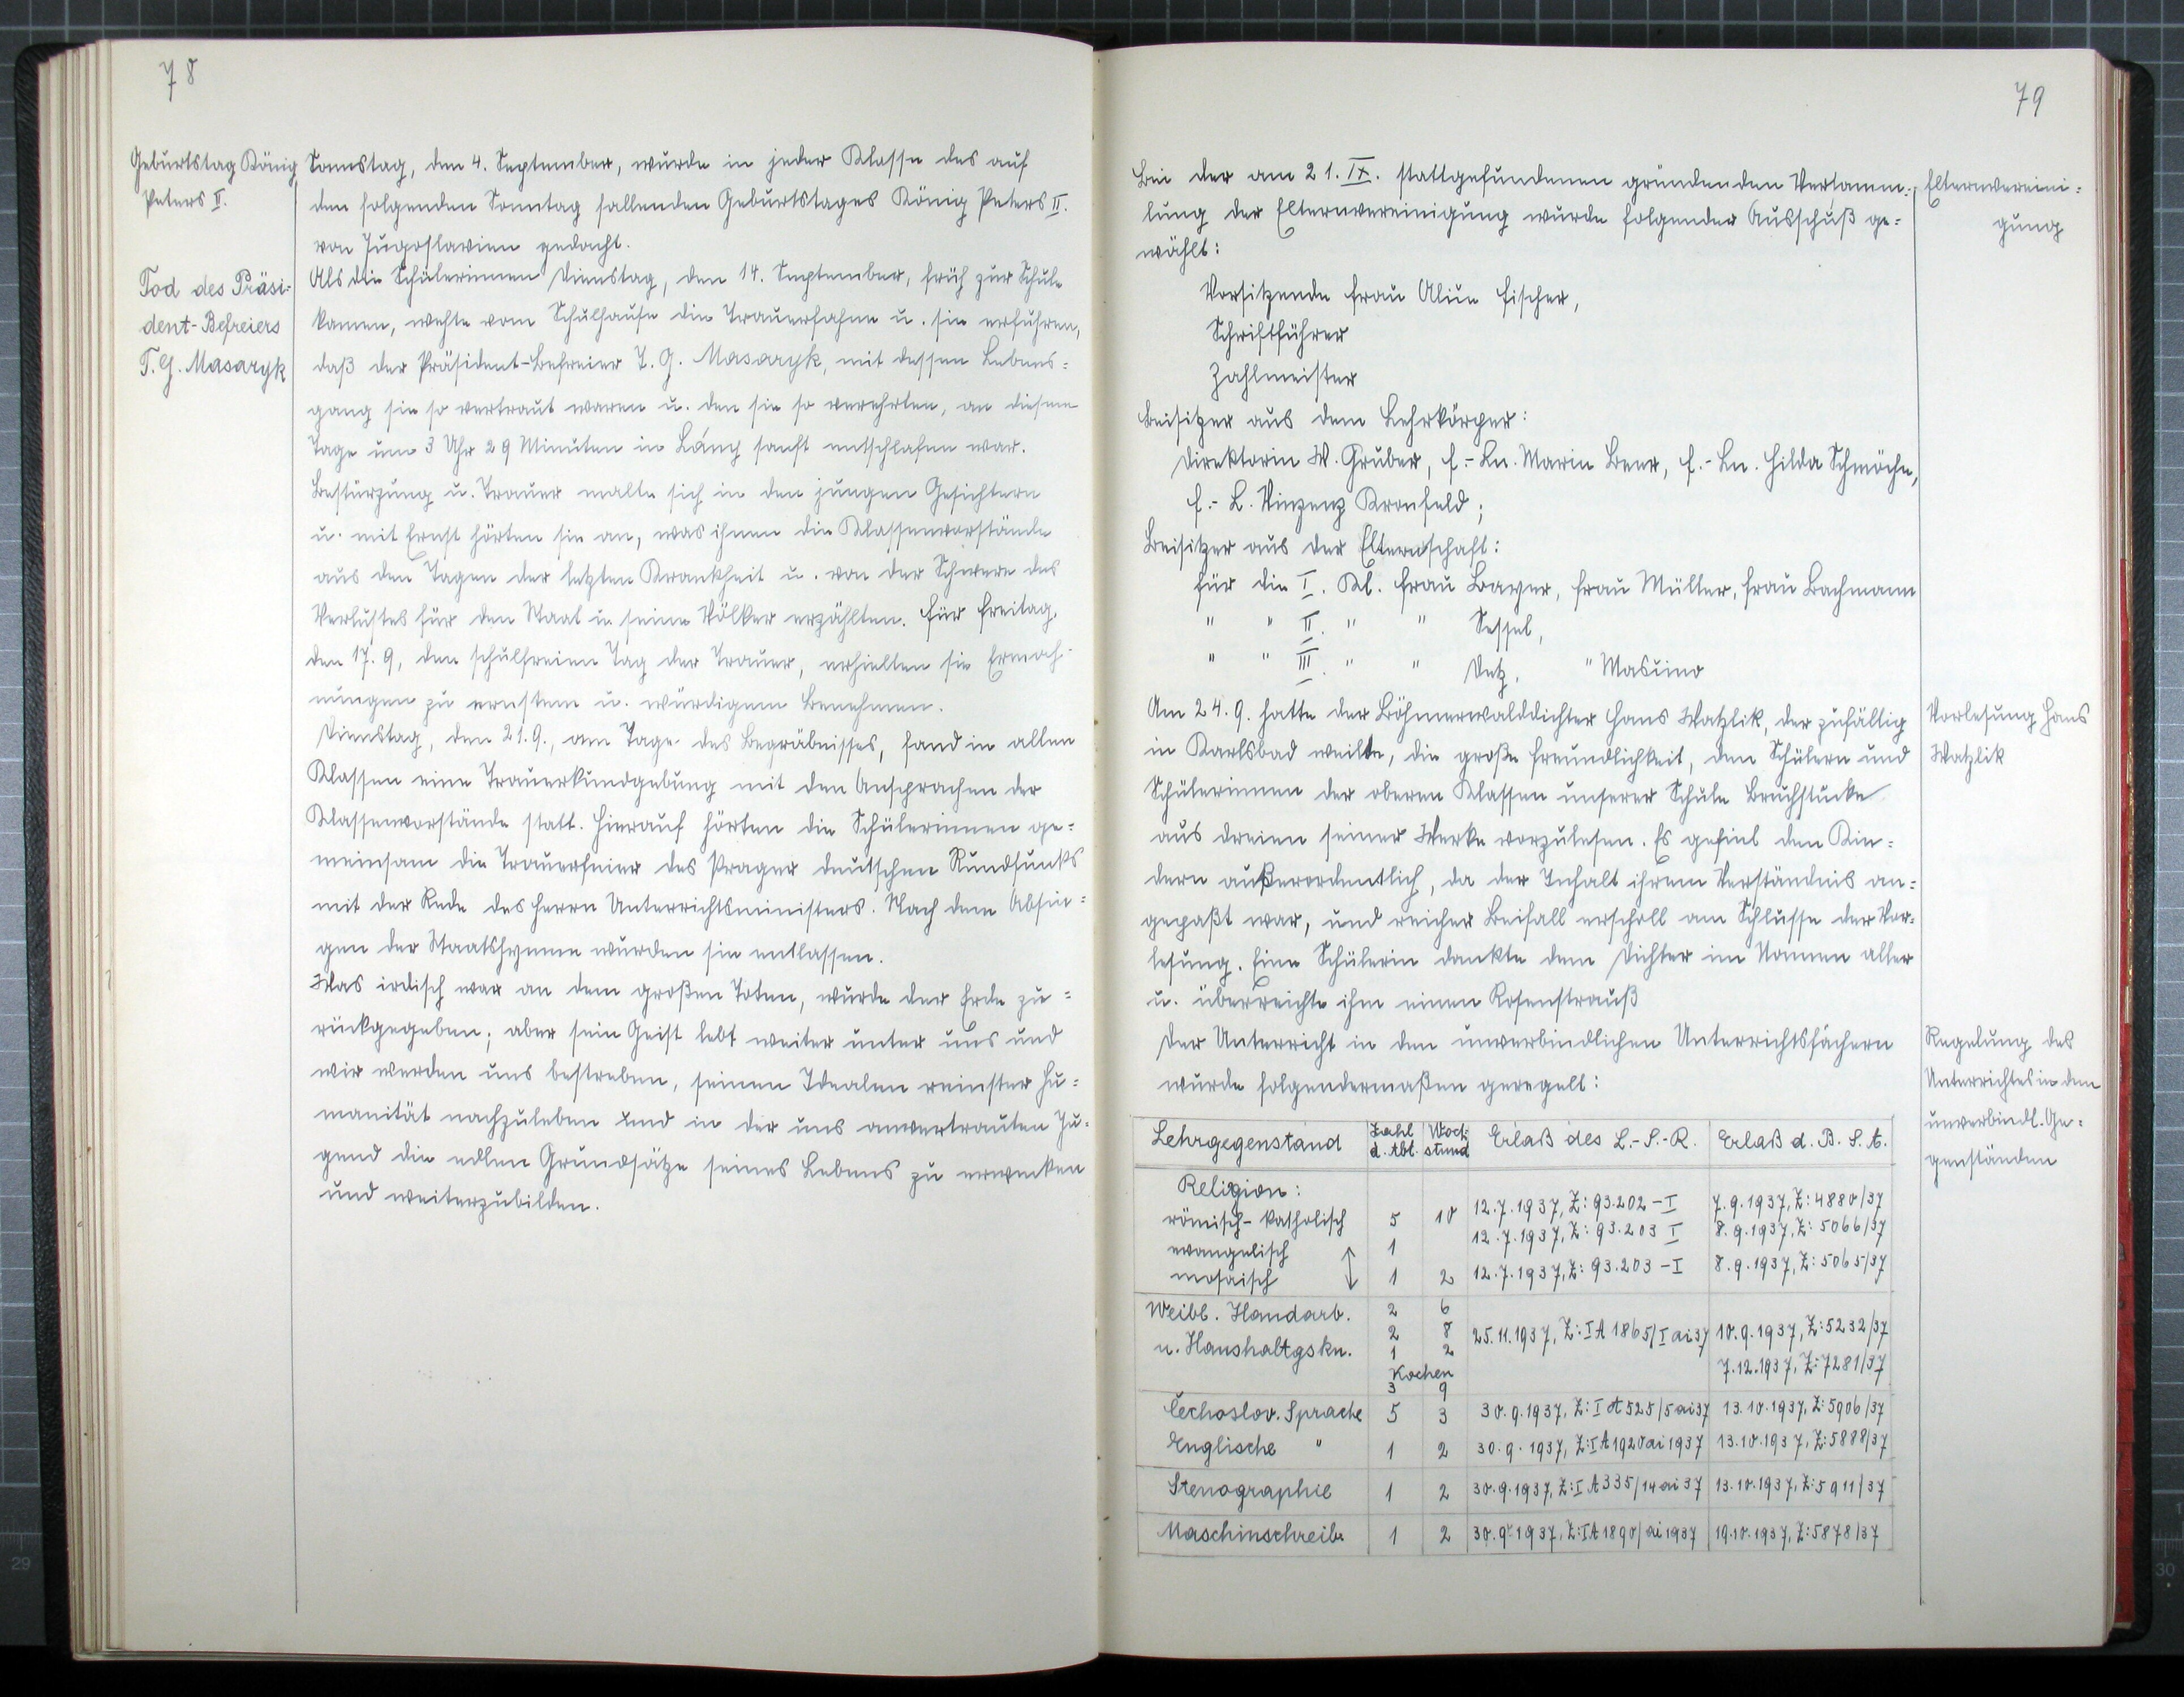 78
Geburtstag König
Peters II.
Samstag, den 4. September, wurde in jeder Klasse des auf
den folgenden Sonntag fallenden Geburtstages König Peters II.
von Jugoslavien gedacht.
Tod des Präsi-
dent-Befreiers
T. G. Masaryk
Als die Schülerinnen Dienstag, den 14. September, früh zur Schule
kamen, wehte vom Schulhause die Trauerfahne u. sie erfuhren,
daß der Präsident-Befreier T. G. Masaryk, mit dessen Lebens-
gang sie so vertraut waren u. den sie so verehrten, an diesem
Tage um 3 Uhr 29 Minuten in Lány sanft entschlafen war.
Bestürzung u. Trauer malte sich in den jungen Gesichtern
u. mit Ernst hörten sie an, was ihnen die Klassenvorstände
aus den Tagen der letzten Krankheit u. von der Schwere des
Verlustes für den Staat u. seine Völker erzählten. Für Freitag,
den 17. 9, den schulfreien Tag der Trauer, erhielten sie Ermah-
nungen zu ernstem u. würdigem Benehmen.
Dienstag, den 21. 9., am Tage des Begräbnisses, fand in allen
Klassen eine Trauerkundgebung mit den Ansprachen der
Klassenvorstände statt. Hierauf hörten die Schülerinnen ge-
meinsam die Trauerfeier des Prager deutschen Rundfunks
mit der Rede des Herrn Unterrichtsministers. Nach dem Absin-
gen der Staatshymne wurden sie entlassen.
Was irdisch war an dem großen Toten, wurde der Erde zu-
rückgegeben; aber sein Geist lebt weiter unter uns und
wir werden uns bestreben, seinen Idealen reinster Hu-
manität nachzuleben und in der uns anvertrauten Ju-
gend die edlen Grundsätze seines Lebens zu erwecken
und weiterzubilden.
79
Bei der am 21. IX. stattgefundenen gründenden Versamm-
lung der Elternvereinigung wurde folgender Ausschuß ge-
wählt:
Elternvereini-
gung
Vorsitzende Frau Aline Fischer,
Schriftführer
Zahlmeister
Beisitzer aus dem Lehrkörper:
Direktorin W. Gruber, F.-Ln. Marie Beer, F.-Ln. Hilda Schmöche,
F.-L. Vinzenz Kronfeld;
Beisitzer aus der Elternschaft:
für die I. Kl. Frau Bayer, Frau Müller, Frau Bachmann
" " II. " " Sessel,
" " III. " " Detz, " Masiino
Am 24. 9. hatte der Böhmerwalddichter Hans Watzlik, der zufällig
in Karlsbad weilte, die große Freundlichkeit, den Schülern und
Schülerinnen der oberen Klassen unserer Schule Bruchstücke
aus dreien seiner Werke vorzulesen. Es gefiel den Kin-
dern außerordentlich, da der Inhalt ihrem Verständnis an-
gepaßt war, und reicher Beifall erscholl am Schlusse der Vor-
lesung. Eine Schülerin dankte dem Dichter im Namen aller
u. überreichte ihm einen Rosenstrauß
Vorlesung Hans
Watzlik
Der Unterricht in den unverbindlichen Unterrichtsfächern
wurde folgendermaßen geregelt:
Regelung des
Unterrichtes in den
unverbindl. Ge-
genständen
Lehrgegenstand Zahl d. Abt. Woch. stund Erlaß des L.-S.-R. Erlaß d. B. S. A.
Religion:
römisch-katholisch 5 10 12.7.1937, Z: 93.202-I 7.9.1937, Z: 4880/37
evangelisch 1 12.7.1937, Z: 93.203 I 8.9.1937, Z: 5066/37
mosaisch 1 2 12.7.1937, Z: 93.203-I 8.9.1937, Z: 5065/37
Weibl. Handarb. 2 6
2 8 25.11.1937, Z: IA 1865/I ai 37 10.9.1937, Z: 5232/37
u. Haushaltgskn. 1 2
Kochen 7.12.1937, Z: 7281/37
3 9
Čechoslov. Sprache 5 3 30.9.1937, Z: I A 525/5 ai 37 13.10.1937, Z: 5906/37
Englische " 1 2 30.9.1937, Z: I A 1920 ai 1937 13.10.1937, Z: 5888/37
Stenographie 1 2 30.9.1937, Z: I A 335/14 ai 37 13.10.1937, Z: 5911/37
Maschinschreib. 1 2 30.9.1937, Z: IA 1890/ai 1937 19.10.1937, Z: 5878/37
29
30